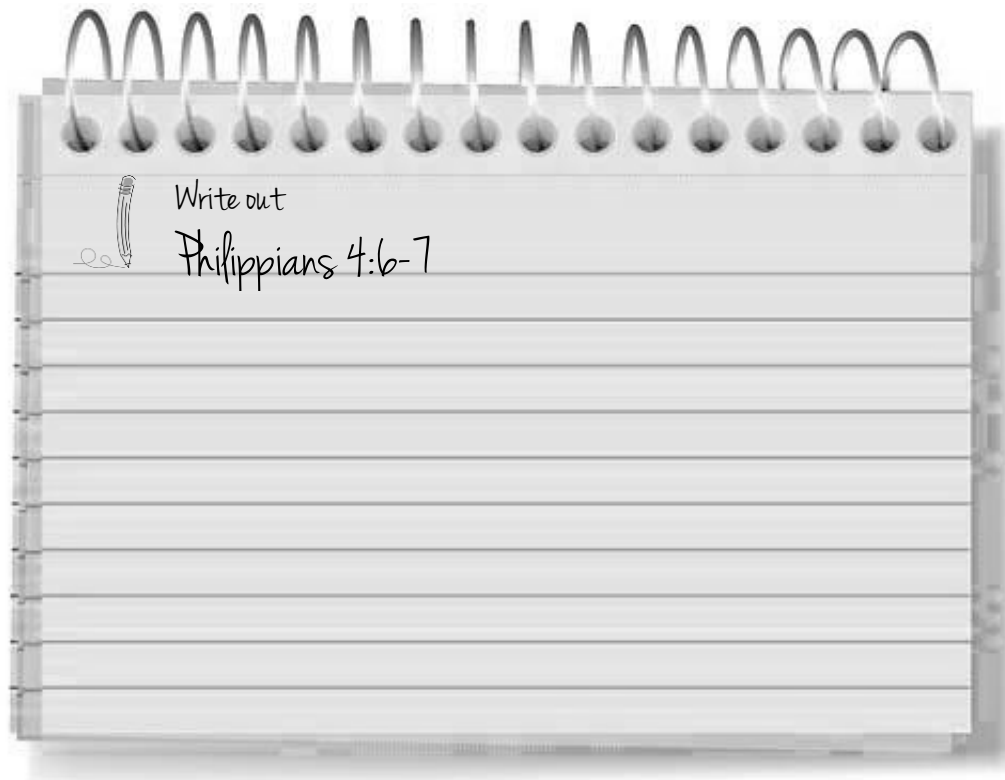 Write out
Philippians 4:6-7